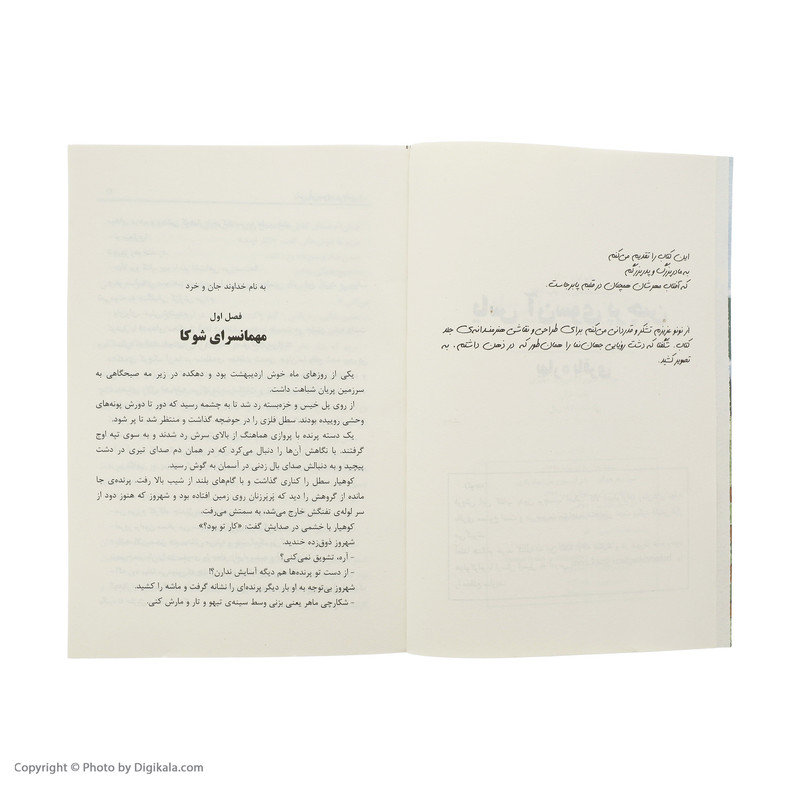 این کتاب را تقدیم می‌کنم
به مادربزرگ و پدربزرگم
که آفتاب مهرشان همچنان در قلبم پابرجاست.
از نونو عزیزم تشکر و قدردانی می‌کنم برای طراحی و نقاشی هنرمندانه‌ی جلد
کتاب. شگفتا که دشت رویایی جهان‌نما را همان‌طور که در ذهن داشتم، به
تصویر کشید.
به نام خداوند جان و خرد
فصل اول
مهمانسرای شوکا
یکی از روزهای ماه خوش اردیبهشت بود و دهکده در زیر مه صبحگاهی به
سرزمین پریان شباهت داشت.
از روی پل خیس و خزه‌بسته رد شد تا به چشمه رسید که دور تا دورش پونه‌های
وحشی روییده بودند. سطل فلزی را در حوضچه گذاشت و منتظر شد تا پر شود.
یک دسته پرنده با پروازی هماهنگ از بالای سرش رد شدند و به سوی تپه اوج
گرفتند. با نگاهش آن‌ها را دنبال می‌کرد که در همان دم صدای تیری در دشت
پیچید و به دنبالش صدای بال زدنی در آسمان به گوش رسید.
کوهیار سطل را کناری گذاشت و با گام‌های بلند از شیب بالا رفت. پرنده‌ی جا
مانده از گروهش را دید که پَرپَرزنان روی زمین افتاده بود و شهروز که هنوز دود از
سر لوله‌ی تفنگش خارج می‌شد، به سمتش می‌رفت.
کوهیار با خشمی در صدایش گفت: «کار تو بود؟»
شهروز ذوق‌زده خندید.
- آره، تشویق نمی‌کنی؟
- از دست تو پرنده‌ها هم دیگه آسایش ندارن؟!
شهروز بی‌توجه به او بار دیگر پرنده‌ای را نشانه گرفت و ماشه را کشید.
- شکارچی ماهر یعنی بزنی وسط سینه‌ی تیهو و تار و مارش کنی.
Copyright © Photo by Digikala.com